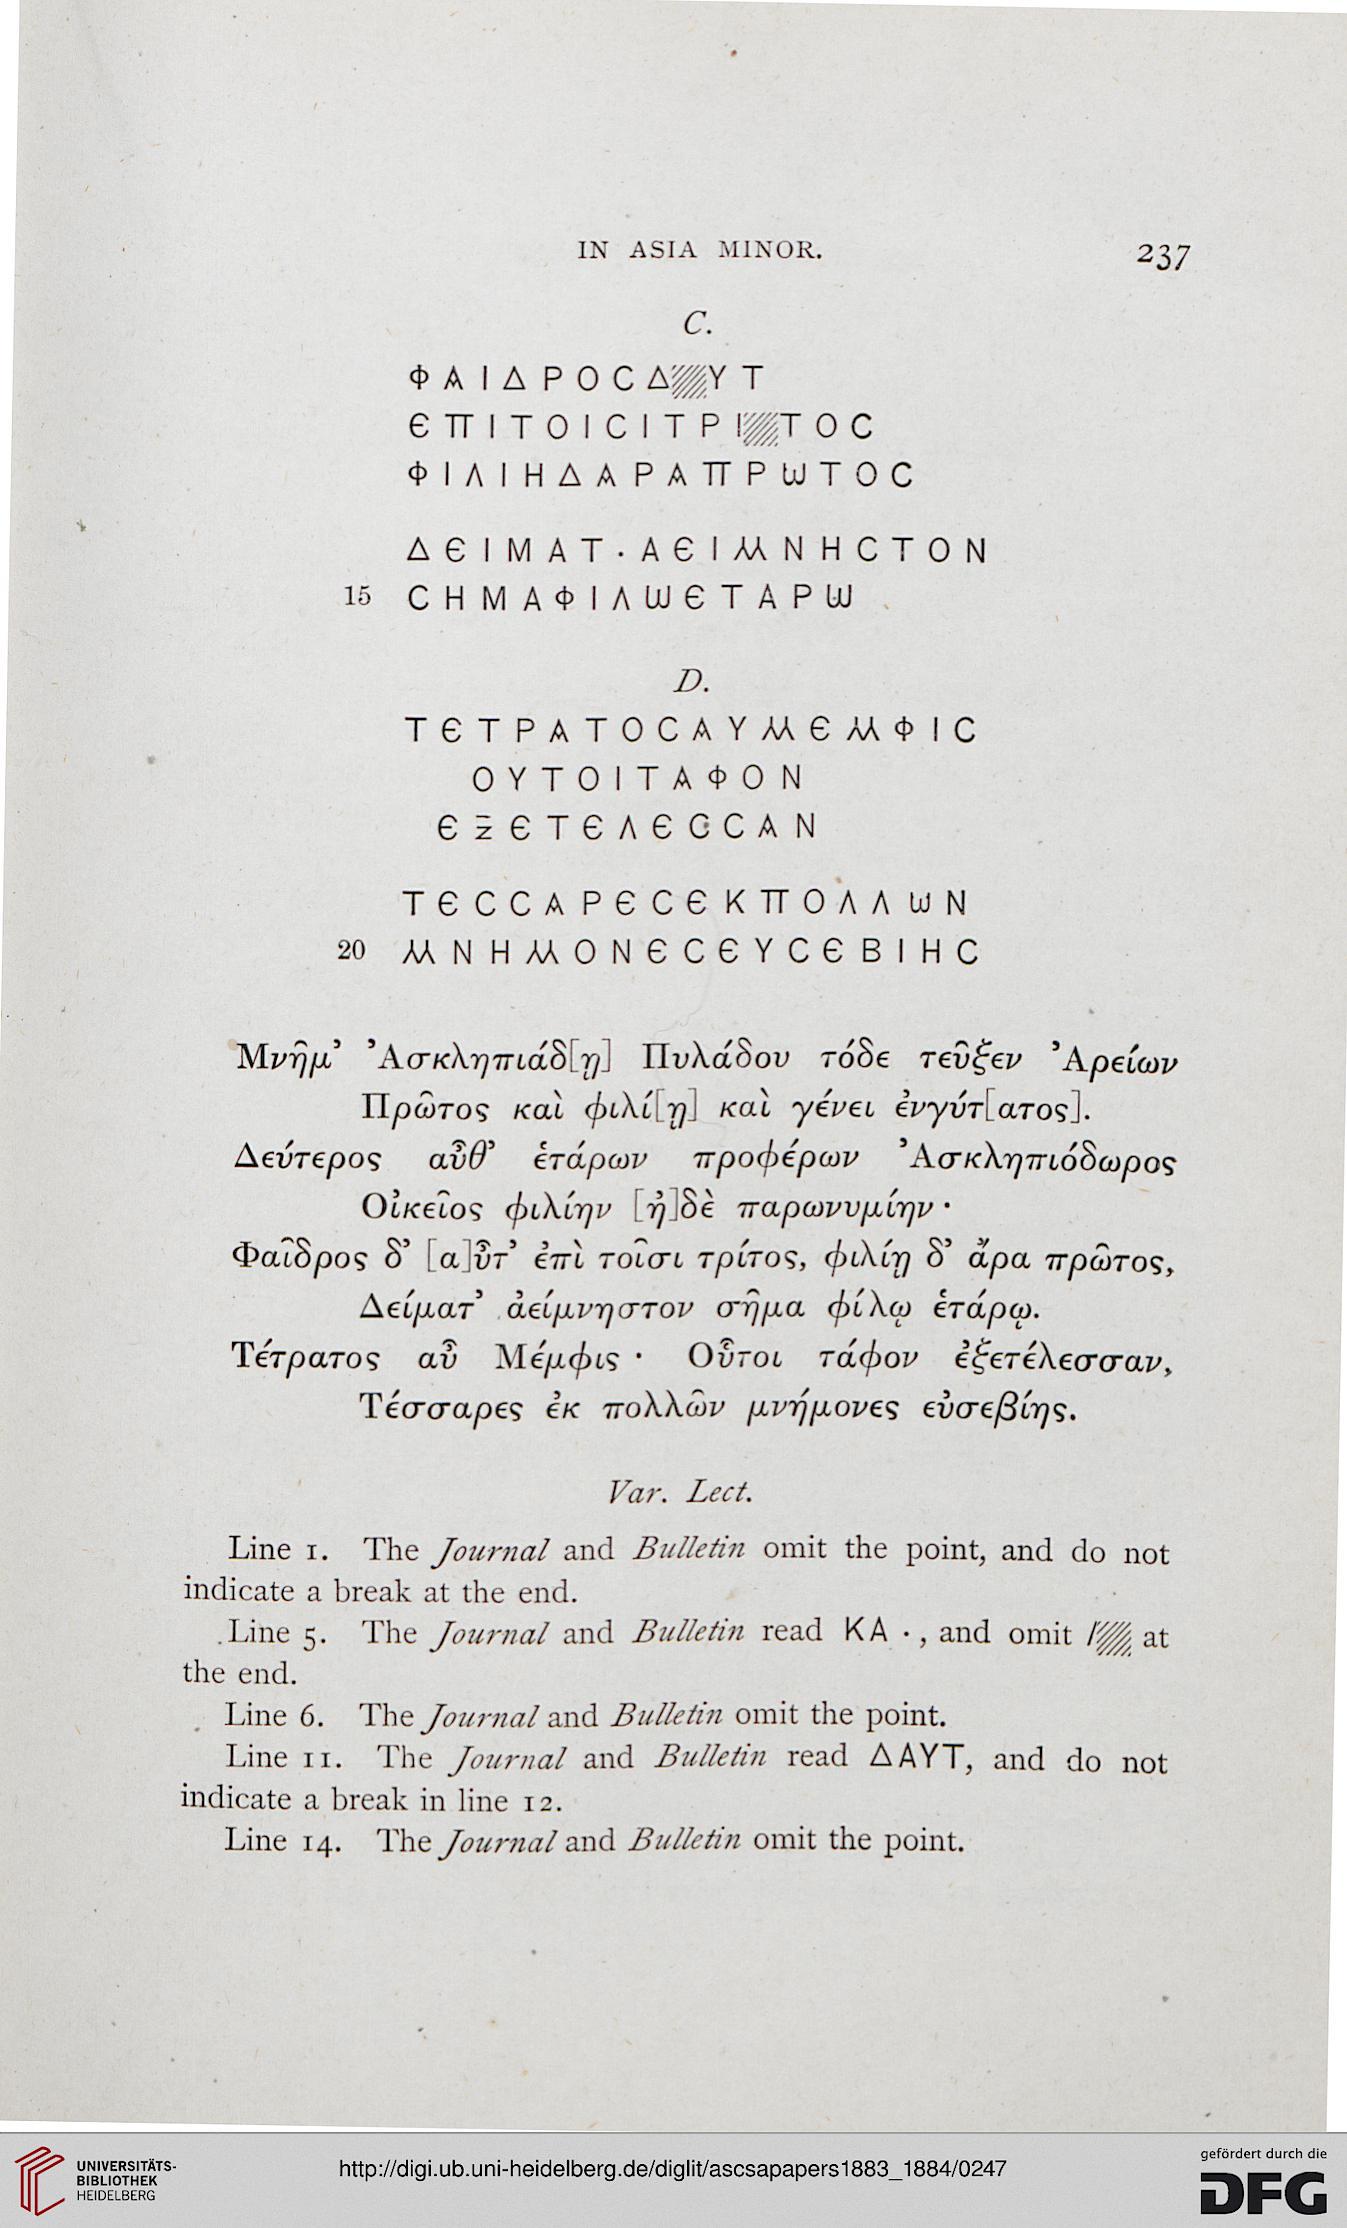 IN ASIA MINOR.
237
C.
ΦΑΙΔΡΟϹΔ▨ΥΤ
ЄΠΙΤΟΙϹΙΤΡΙ▨ΤΟϹ
ΦΙΛΙΗΔΑΡΑΠΡΩΤΟϹ
ΔЄΙΜΑΤ·ΑЄΙΜΝΗϹΤΟΝ
15 ϹΗΜΑΦΙΛΩЄΤΑΡΩ
D.
ΤЄΤΡΑΤΟϹΑΥΜЄΜΦΙϹ
ΟΥΤΟΙΤΑΦΟΝ
ЄΞЄΤЄΛЄϹϹΑΝ
ΤЄϹϹΑΡЄϹЄΚΠΟΛΛΩΝ
20 ΜΝΗΜΟΝЄϹЄΥϹЄΒΙΗϹ
Μνῆμ’ Ἀσκληπιάδ[ῃ] Πυλάδου τόδε τεῦξεν Ἀρείων
Πρῶτος καὶ φιλί[ῃ] καὶ γένει ἐνγύτ[ατος].
Δεύτερος αὖθ’ ἑτάρων προφέρων Ἀσκληπιόδωρος
Οἰκεῖος φιλίην [ἠ]δὲ παρωνυμίην·
Φαῖδρος δ’ [α]ὖτ’ ἐπὶ τοῖσι τρίτος, φιλίῃ δ’ ἄρα πρῶτος,
Δείματ’ ἀείμνηστον σῆμα φίλῳ ἑτάρῳ.
Τέτρατος αὖ Μέμφις · Οὗτοι τάφον ἐξετέλεσσαν,
Τέσσαρες ἐκ πολλῶν μνήμονες εὐσεβίης.
Var. Lect.
Line 1. The Journal and Bulletin omit the point, and do not
indicate a break at the end.
Line 5. The Journal and Bulletin read ΚΑ · , and omit /▨ at
the end.
Line 6. The Journal and Bulletin omit the point.
Line 11. The Journal and Bulletin read ΔΑΥΤ, and do not
indicate a break in line 12.
Line 14. The Journal and Bulletin omit the point.
UNIVERSITÄTS-
BIBLIOTHEK
HEIDELBERG
http://digi.ub.uni-heidelberg.de/diglit/ascsapapers1883_1884/0247
gefördert durch die
DFG